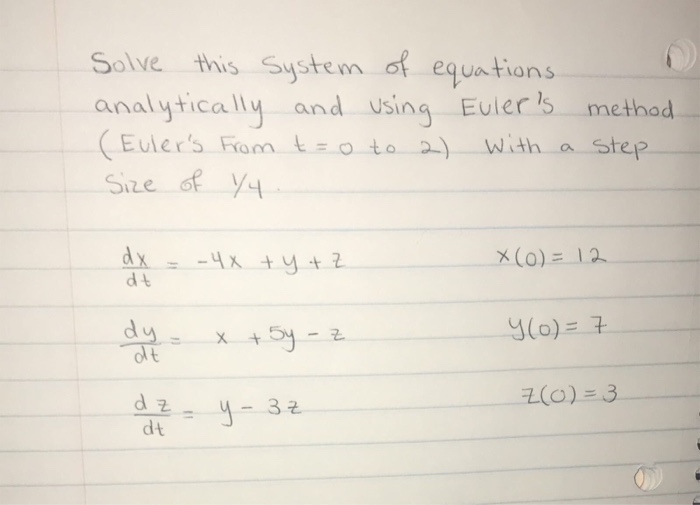 Solve this System of equations
analytically and using Euler's method
(Euler's From t = 0 to 2) With a step
Size of 1/4.
dx/dt = -4x + y + z x(0) = 12
dy/dt = x + 5y - z y(0) = 7
dz/dt = y - 3z z(0) = 3